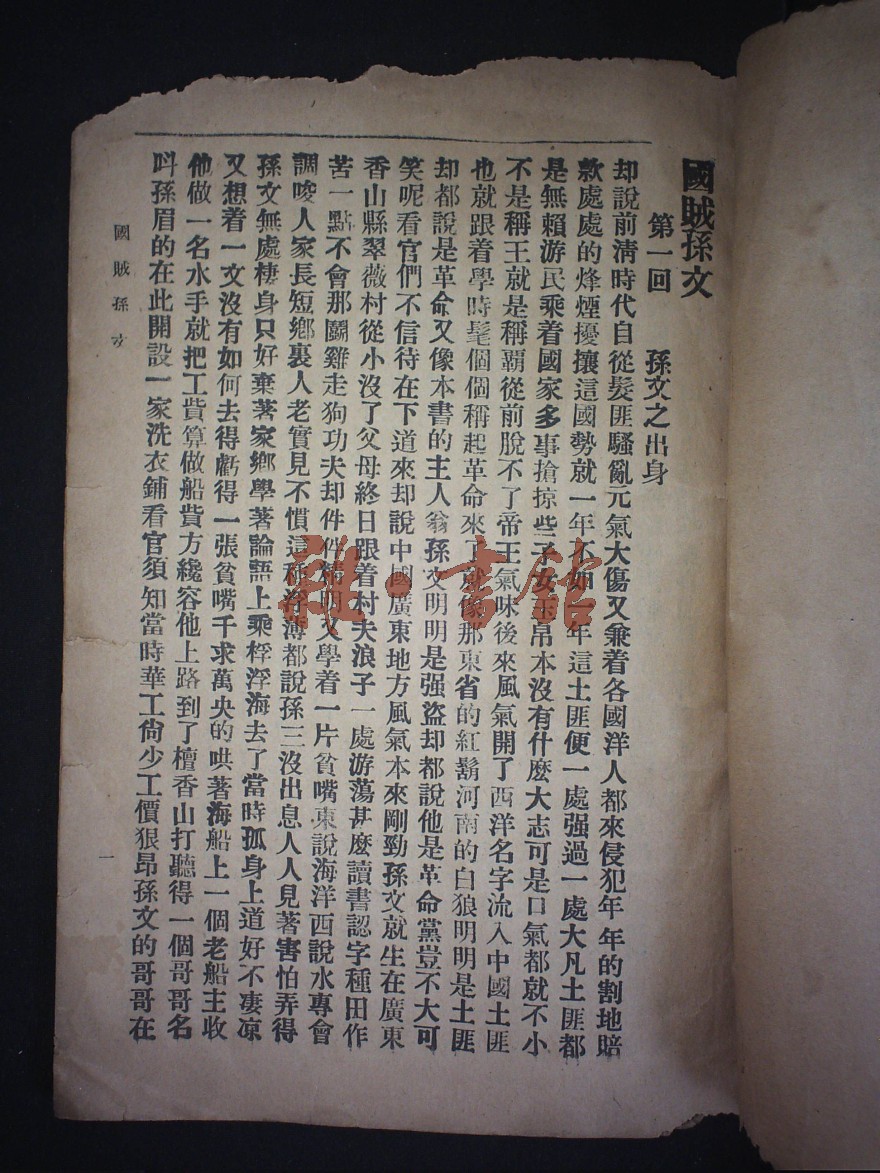 國賊孫文
第一回　孫文之出身
却說前淸時代自從髮匪騷亂元氣大傷又兼着各國洋人都來侵犯年年的割地賠
欵處處的烽煙擾攘這國勢就一年不如一年這土匪便一處强過一處大凡土匪都
是無賴游民乘着國家多事搶掠些子女玉帛本沒有什麽大志可是口氣都就不小
不是稱王就是稱霸從前脫不了帝王氣味後來風氣開了西洋名字流入中國土匪
也就跟着學時髦個個稱起革命來了就像那東省的紅鬍河南的白狼明明是土匪
却都說是革命又像本書的主人翁孫文明明是强盜却都說他是革命黨豈不大可
笑呢看官們不信待在下道來却說中國廣東地方風氣本來剛勁孫文就生在廣東
香山縣翠薇村從小沒了父母終日跟着村夫浪子一處游蕩甚麽讀書認字種田作
苦一點不會那鬭雞走狗功夫却件件精明又學着一片貧嘴東說海洋西說水專會
調唆人家長短鄉裏人老實見不慣這種浮薄都說孫三沒出息人人見著害怕弄得
孫文無處棲身只好棄著家鄉學著論語上乘桴浮海去了當時孤身上道好不凄凉
又想着一文沒有如何去得虧得一張貧嘴千求萬央的哄著海船上一個老船主收
他做一名水手就把工貲算做船貲方纔容他上路到了檀香山打聽得一個哥哥名
呌孫眉的在此開設一家洗衣鋪看官須知當時華工尙少工價狠昂孫文的哥哥在
國賊孫文
一
雜·書舘